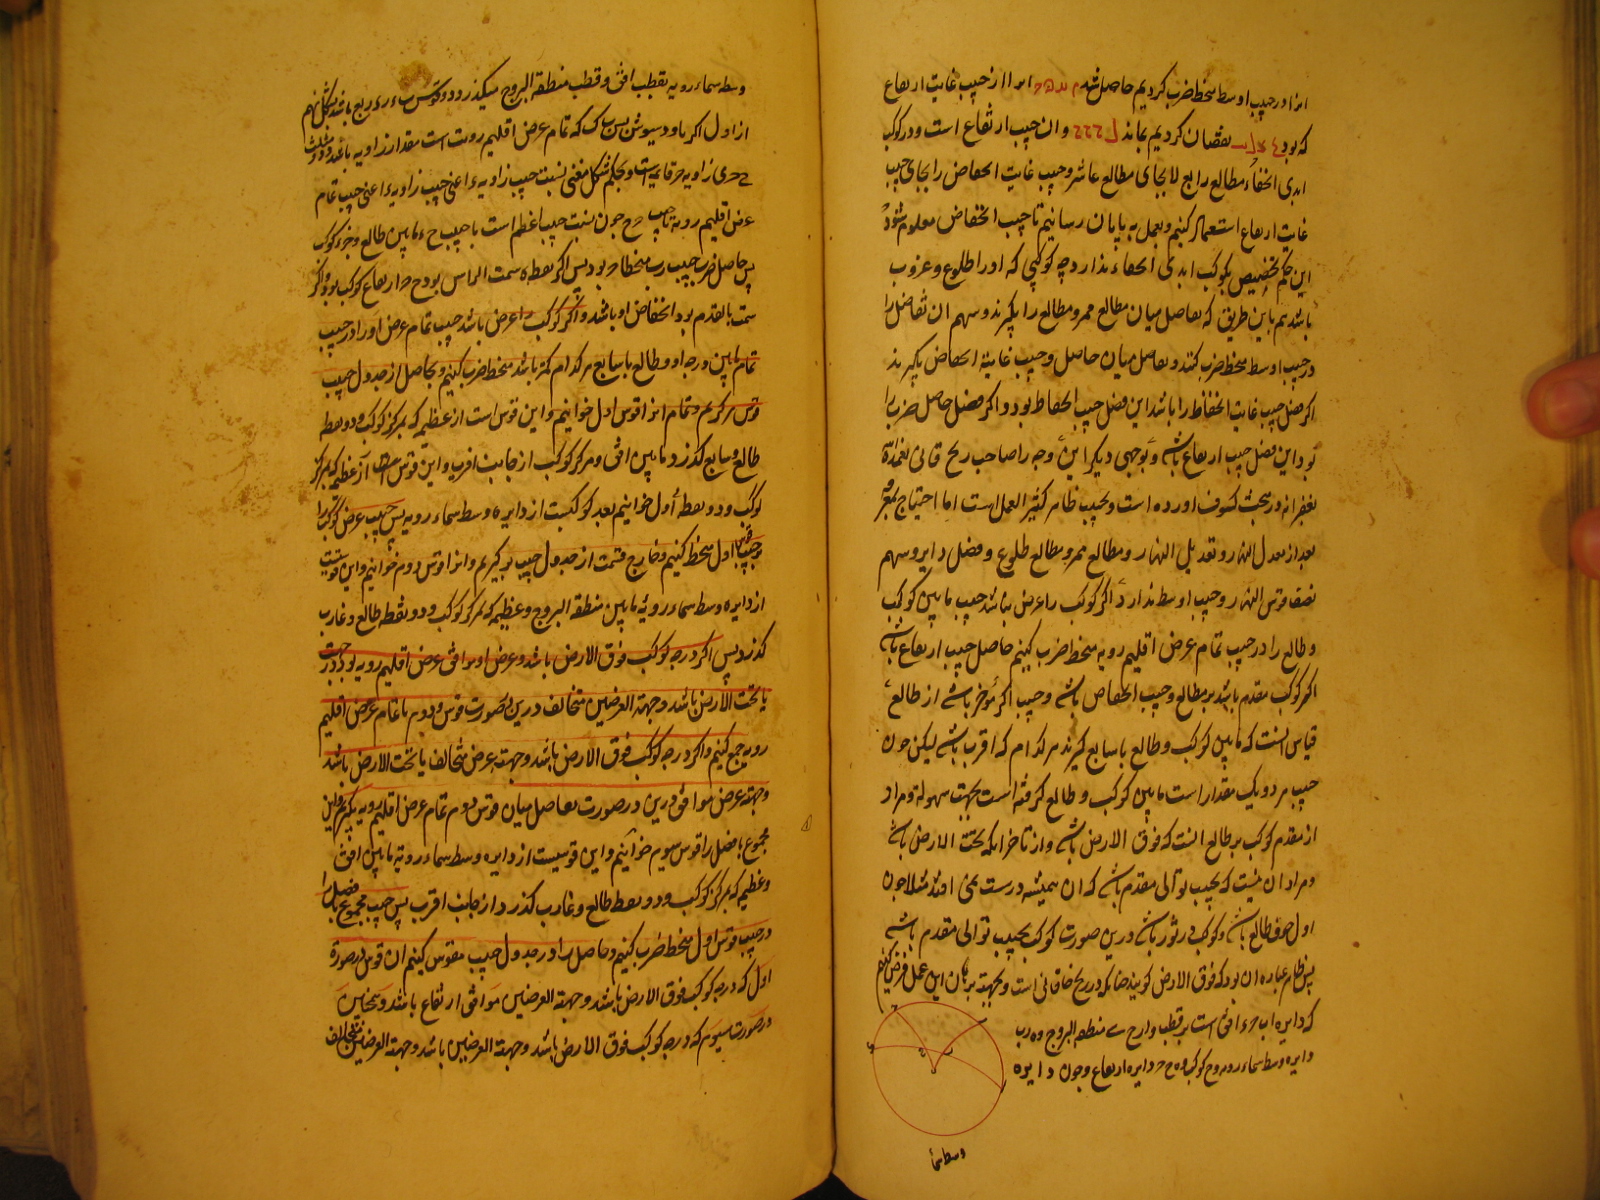 انرا در جیب اوسط منحط ضرب کردیم حاصل شد انرا از جیب غایت ارتفاع
که بود نقصان کردیم بماند وان جیب ارتفاع است ودر کوکب
ابدی الخفاء مطالع رابع لا بجای مطالع عاشر وجیب غایت انخفاض را بجای جیب
غایت ارتفاع استعمال کنیم وعمل به پایان رسانیم تا جیب انخفاض معلوم شود
این حکم تخصیص بکوکب ابدی الخفاء ندارد چه کوکبی که اورا طلوع وغروب
باشد هم باین طریق که تفاضل میان مطالع ممر ومطالع را بگیرند وسهم ان تفاضل را
در جیب اوسط منحط ضرب کنند وتفاضل میان حاصل وجیب غایة انخفاض بگیرند
اگر فضل جیب غایت انخفاض را باشد این فضل جیب انخفاض بود واگر فضل حاصل ضرب را
بود این فضل جیب ارتفاع باشد وبوجهی دیگر این وجه را صاحب زیج خاقانی تغمده
بغفرانه در مبحث کسوف اورده است وبحسب ظاهر کثیر العمل است اما احتیاج بمعرفة
بعد از معدل النهار وتعدیل النهار ومطالع ممر ومطالع طلوع وفضل دایر وسهم
نصف قوس النهار وجیب اوسط ندارد اگر کوکب را عرض نباشد جیب مابین کوکب
وطالع را در جیب تمام عرض اقلیم رویه منحط ضرب کنیم حاصل جیب ارتفاع باشد
اگر کوکب مقدم باشد بر مطالع وجیب انخفاض باشد وجیب اگر مؤخر باشد از طالع
قیاس انست که مابین کوکب وطالع یا سابع گیرند هر کدام که اقرب باشد لیکن چون
جیب هر دو یک مقدار است مابین کوکب وطالع گرفته است بجهت سهولة ومراد
از مقدم کوکب بر طالع انست که فوق الارض باشد واز تاخر انکه تحت الارض باشد
ومراد ان نیست که بحسب توالی مقدم باشد که ان همیشه درست نمی افتد مثلا چون
اول طالع باشد وکوکب در ثور باشد درین صورت کوکب بحسب توالی مقدم باشد
پس ظاهر عباره ان بود که فوق الارض گویند چنانکه در زیج خاقانی است وبجهة برهان این عمل فرض کنیم
که دایره افق است بر قطب منطقة البروج
دایره وسط سماء رویه وح کوکب دایره ارتفاع وچون دایره
وسط سماء
وسط سماء رویه بقطب افق وقطب منطقة البروج میگذرد ربع باشد بشکل نهم
از اول اکر ثاودسیوس پس که تمام عرض اقلیم رویت است مقدار زاویه باشد ودر مثلث
زاویه قایمه است وبحکم شکل مغنی نسبت جیب زاویه اعنی جیب زاویه اعنی جیب تمام
عرض اقلیم رویه تا جیب چون نسبت جیب اعظم است با جیب مابین طالع وجزء کوکب
پس حاصل ضرب جیب منحطا بود پس اگر نقطه سمت الراس بود ارتفاع کوکب بود واگر
سمت القدم بود انخفاض او باشد واگر کوکب را عرض باشد جیب تمام عرض اورا در جیب
تمام مابین درجه او وطالع یا سابع هر کدام که باشد منحط ضرب کنیم وحاصل از جدول جیب
قوس گیریم وتمام انرا قوس اول خوانیم واین قوس است از عظیمه که بمرکز کوکب ودو نقطه
طالع وسابع گذرد مابین افق ومرکز کوکب از جانب اقرب واین قوس از عظیمه که بمرکز
کوکب ودو نقطه اول خوانیم بعد کوکبست از دایره وسط سماء رویه پس جیب عرض کوکب را
بر جیب قوس اول منحط کنیم وخارج قسمت از جدول جیب بر گیریم وانرا قوس دوم خوانیم واین قوسیست
از دایره وسط سماء رویه مابین منطقة البروج وعظیمه که بمرکز کوکب ودو نقطه طالع وغارب
گذرد پس اگر درجه کوکب فوق الارض باشد وعرض او موافق عرض اقلیم رویه بود در جهت
یا تحت الارض باشد وجهة العرضین متخالف درین صورت قوس دوم با تمام عرض اقلیم
رویه جمع کنیم واگر درجه کوکب فوق الارض باشد وجهة عرض متخالف یا تحت الارض باشد
وجهة عرض موافق درین در صورت تفاضل میان قوس دوم وتمام عرض اقلیم رویه بگیریم واین
مجموع یا فضل را قوس سیوم خوانیم واین قوسیست از دایره وسط سماء رویه مابین افق
وعظیمه که بمرکز کوکب ودو نقطه طالع وغارب گذرد از جانب اقرب پس جیب مجموع یا فضل را
در جیب قوس اول منحط ضرب کنیم وحاصل را در جدول جیب مقوس کنیم ان قوس در صورة
اول که درجه کوکب فوق الارض باشد وجهة العرضین موافق ارتفاع باشد
در صورت سیوم که درجه کوکب فوق الارض باشد وجهة العرضین باشد وجهة العرضین متخالف